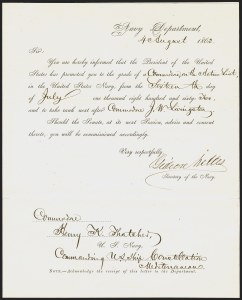 Navy Department,
4 August 1862
Sir:
You are hereby informed that the President of the United
States has promoted you to the grade of a Commodore, on the Active List,
in the United States Navy, from the Sixteenth day
of July one thousand eight hundred and sixty two
and to take rank next after Commodore J. W. Livingston
Should the Senate, at its next Session, advise and consent
thereto, you will be commissioned accordingly.
Very respectfully,
Gideon Welles
Secretary of the Navy
Commodore
Henry K. Thatcher,
U. S. Navy,
Commanding U.S. Ship Constellation
Mediterranean
NOTE.—Acknowledge the receipt of this letter to the Department.